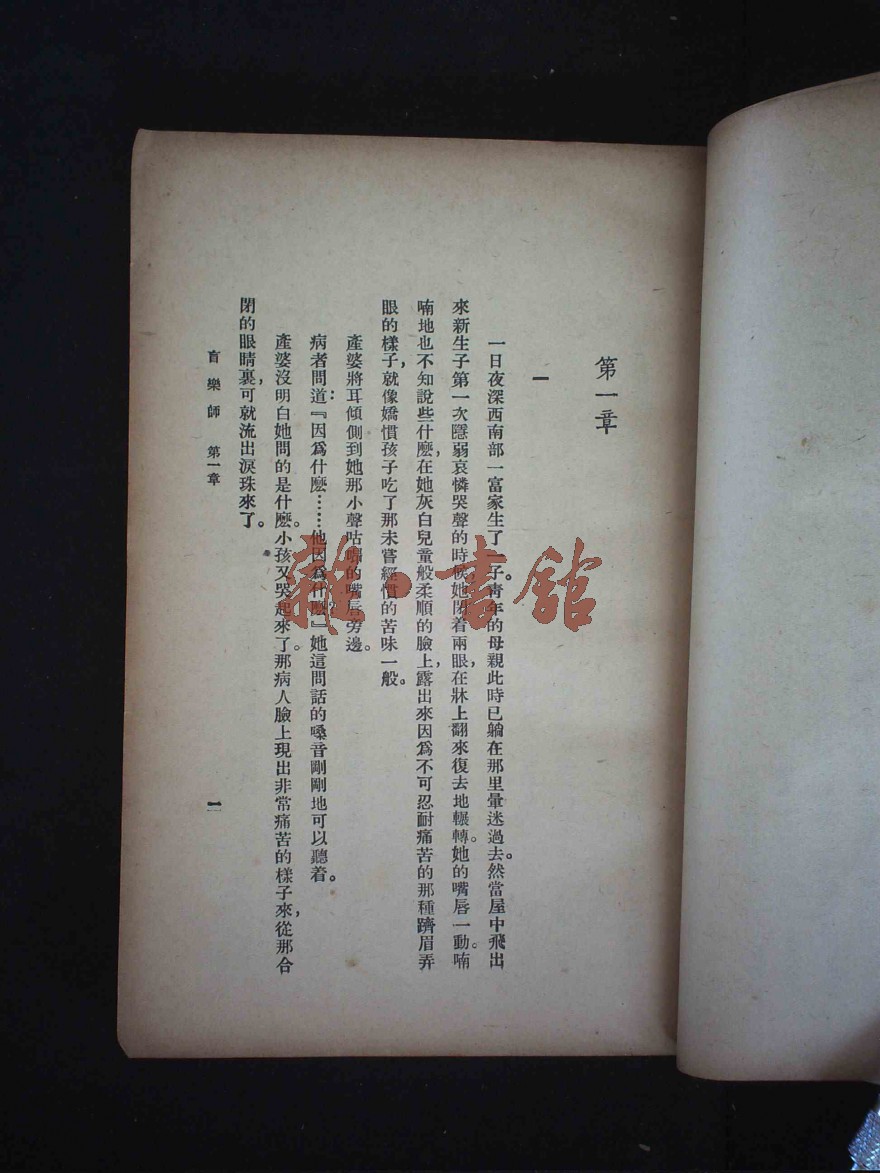 第一章
一
一日夜深西南部一富家生了一子。青年的母親此時已躺在那里暈迷過去。然當屋中飛出
來新生子第一次隱弱哀憐哭聲的時候，她閉着兩眼，在牀上翻來復去地輾轉。她的嘴唇一動。喃
喃地也不知說些什麽，在她灰白兒童般柔順的臉上，露出來因爲不可忍耐痛苦的那種躋眉弄
眼的樣子，就像嬌慣孩子吃了那未嘗經慣的苦味一般。
產婆將耳傾側到她那小聲咕噥的嘴唇旁邊。
病者問道：『因爲什麽……他因爲什麽』她這問話的嗓音剛剛地可以聽着。
產婆沒明白她問的是什麽。小孩又哭起來了。那病人臉上現出非常痛苦的樣子來，從那合
閉的眼睛裏，可就流出淚珠來了。
盲樂師 第一章
一
雜·書館